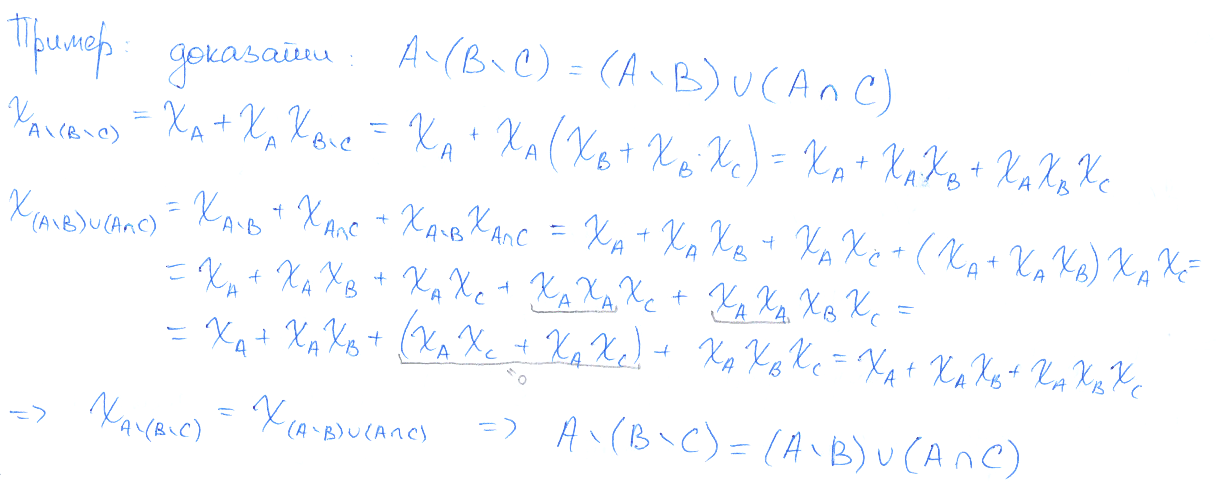 Пример: доказати: A \ (B \ C) = (A \ B) ∪ (A ∩ C)
χ_{A\(B\C)} = χ_A + χ_A χ_{B\C} = χ_A + χ_A (χ_B + χ_B · χ_C) = χ_A + χ_A · χ_B + χ_A χ_B χ_C
χ_{(A\B)∪(A∩C)} = χ_{A\B} + χ_{A∩C} + χ_{A\B} χ_{A∩C} = χ_A + χ_A χ_B + χ_A χ_C + (χ_A + χ_A χ_B) χ_A χ_C =
= χ_A + χ_A χ_B + χ_A χ_C + χ_A χ_A χ_C + χ_A χ_A χ_B χ_C =
= χ_A + χ_A χ_B + (χ_A χ_C + χ_A χ_C) + χ_A χ_B χ_C = χ_A + χ_A χ_B + χ_A χ_B χ_C
= 0
=> χ_{A\(B\C)} = χ_{(A\B)∪(A∩C)} => A \ (B \ C) = (A \ B) ∪ (A ∩ C)